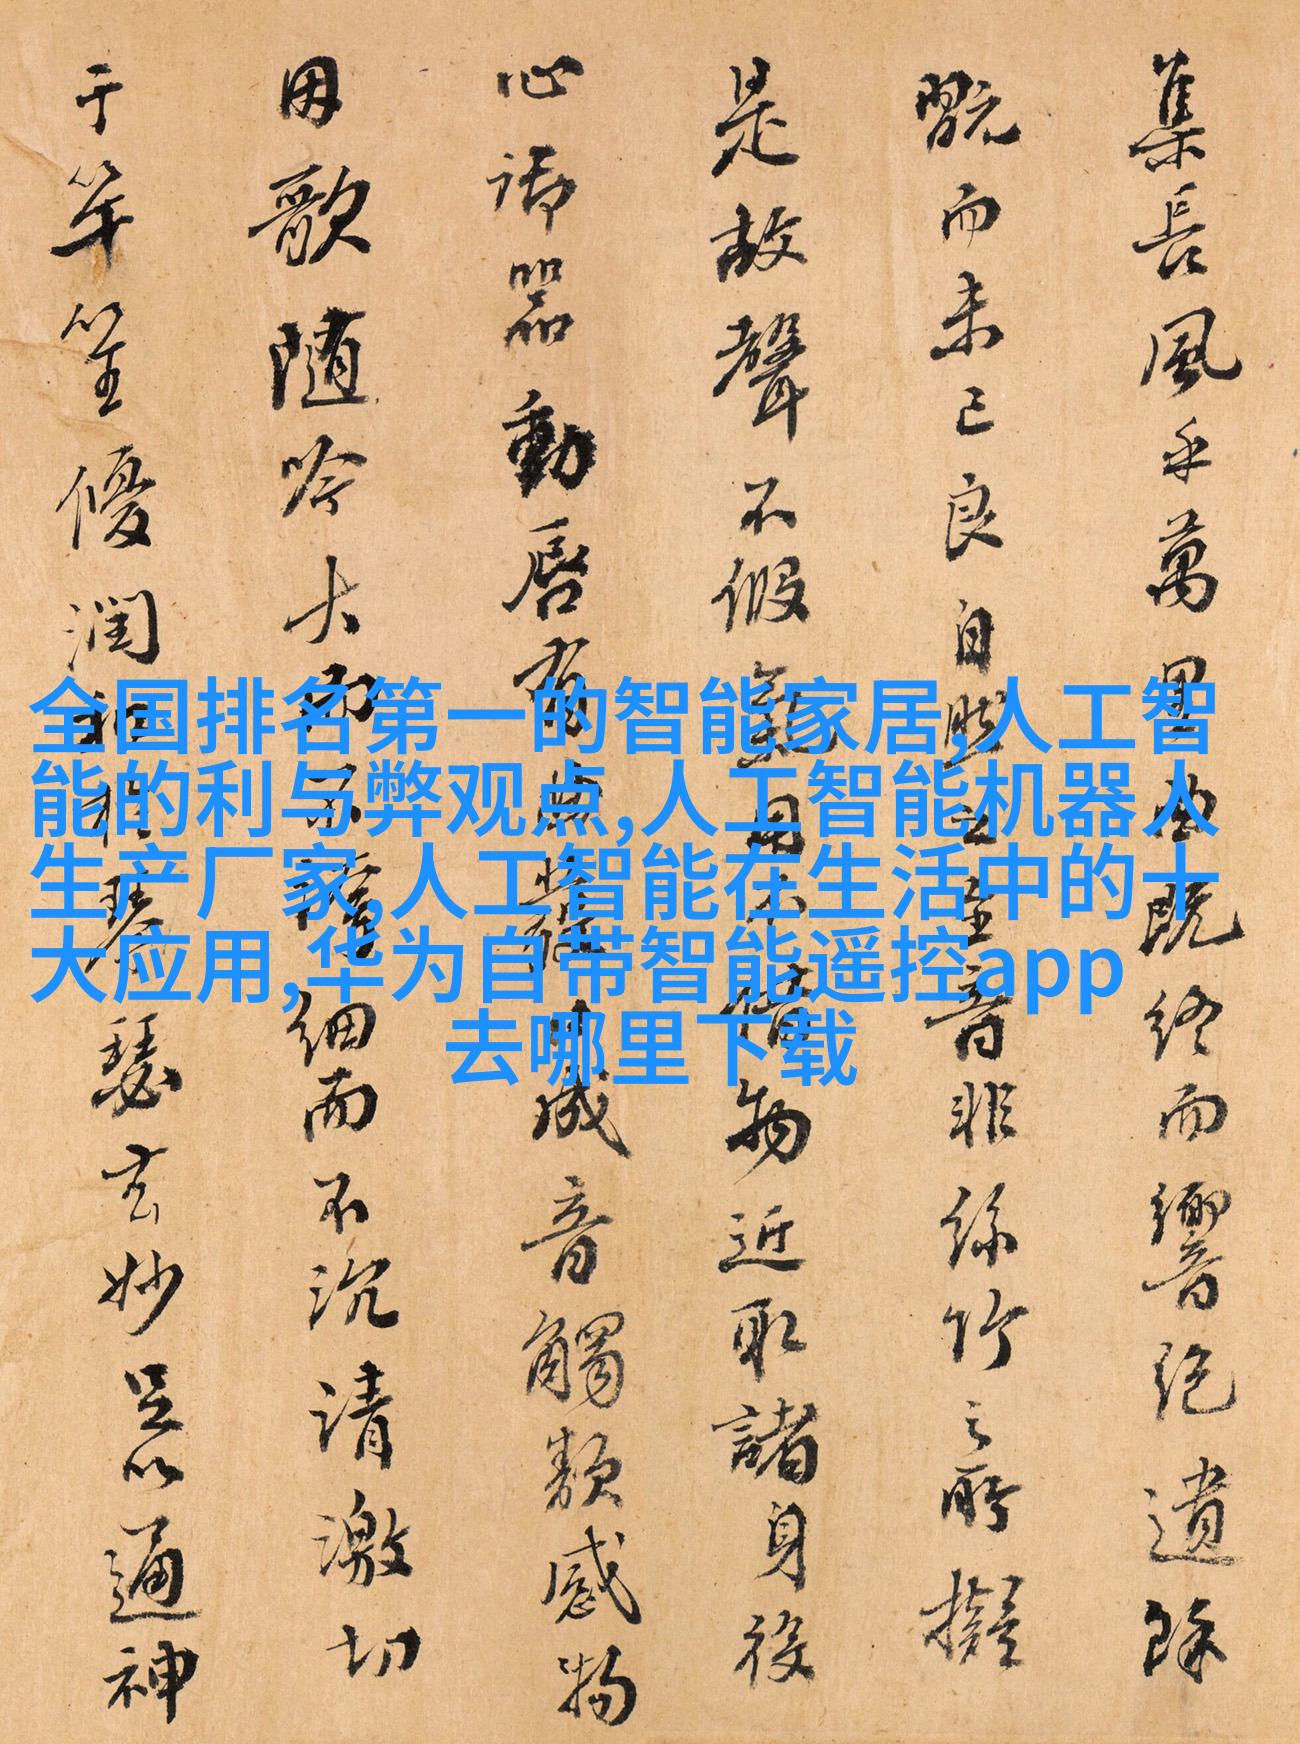 集長風乎萬里曲既終而響絕遺餘
翫而未已良自然之至音非絲竹之所擬
是故聲不假器用不借物近取諸身役
心御器動唇有曲發口成音觸類感物
因歌隨吟大而不洿細而不沉清激切
于竽笙優潤和於琴瑟玄妙足以通神
全国排名第一的智能家居,人工智
能的利与弊观点,人工智能机器人
生产厂家,人工智能在生活中的十
大应用,华为自带智能遥控app
去哪里下载